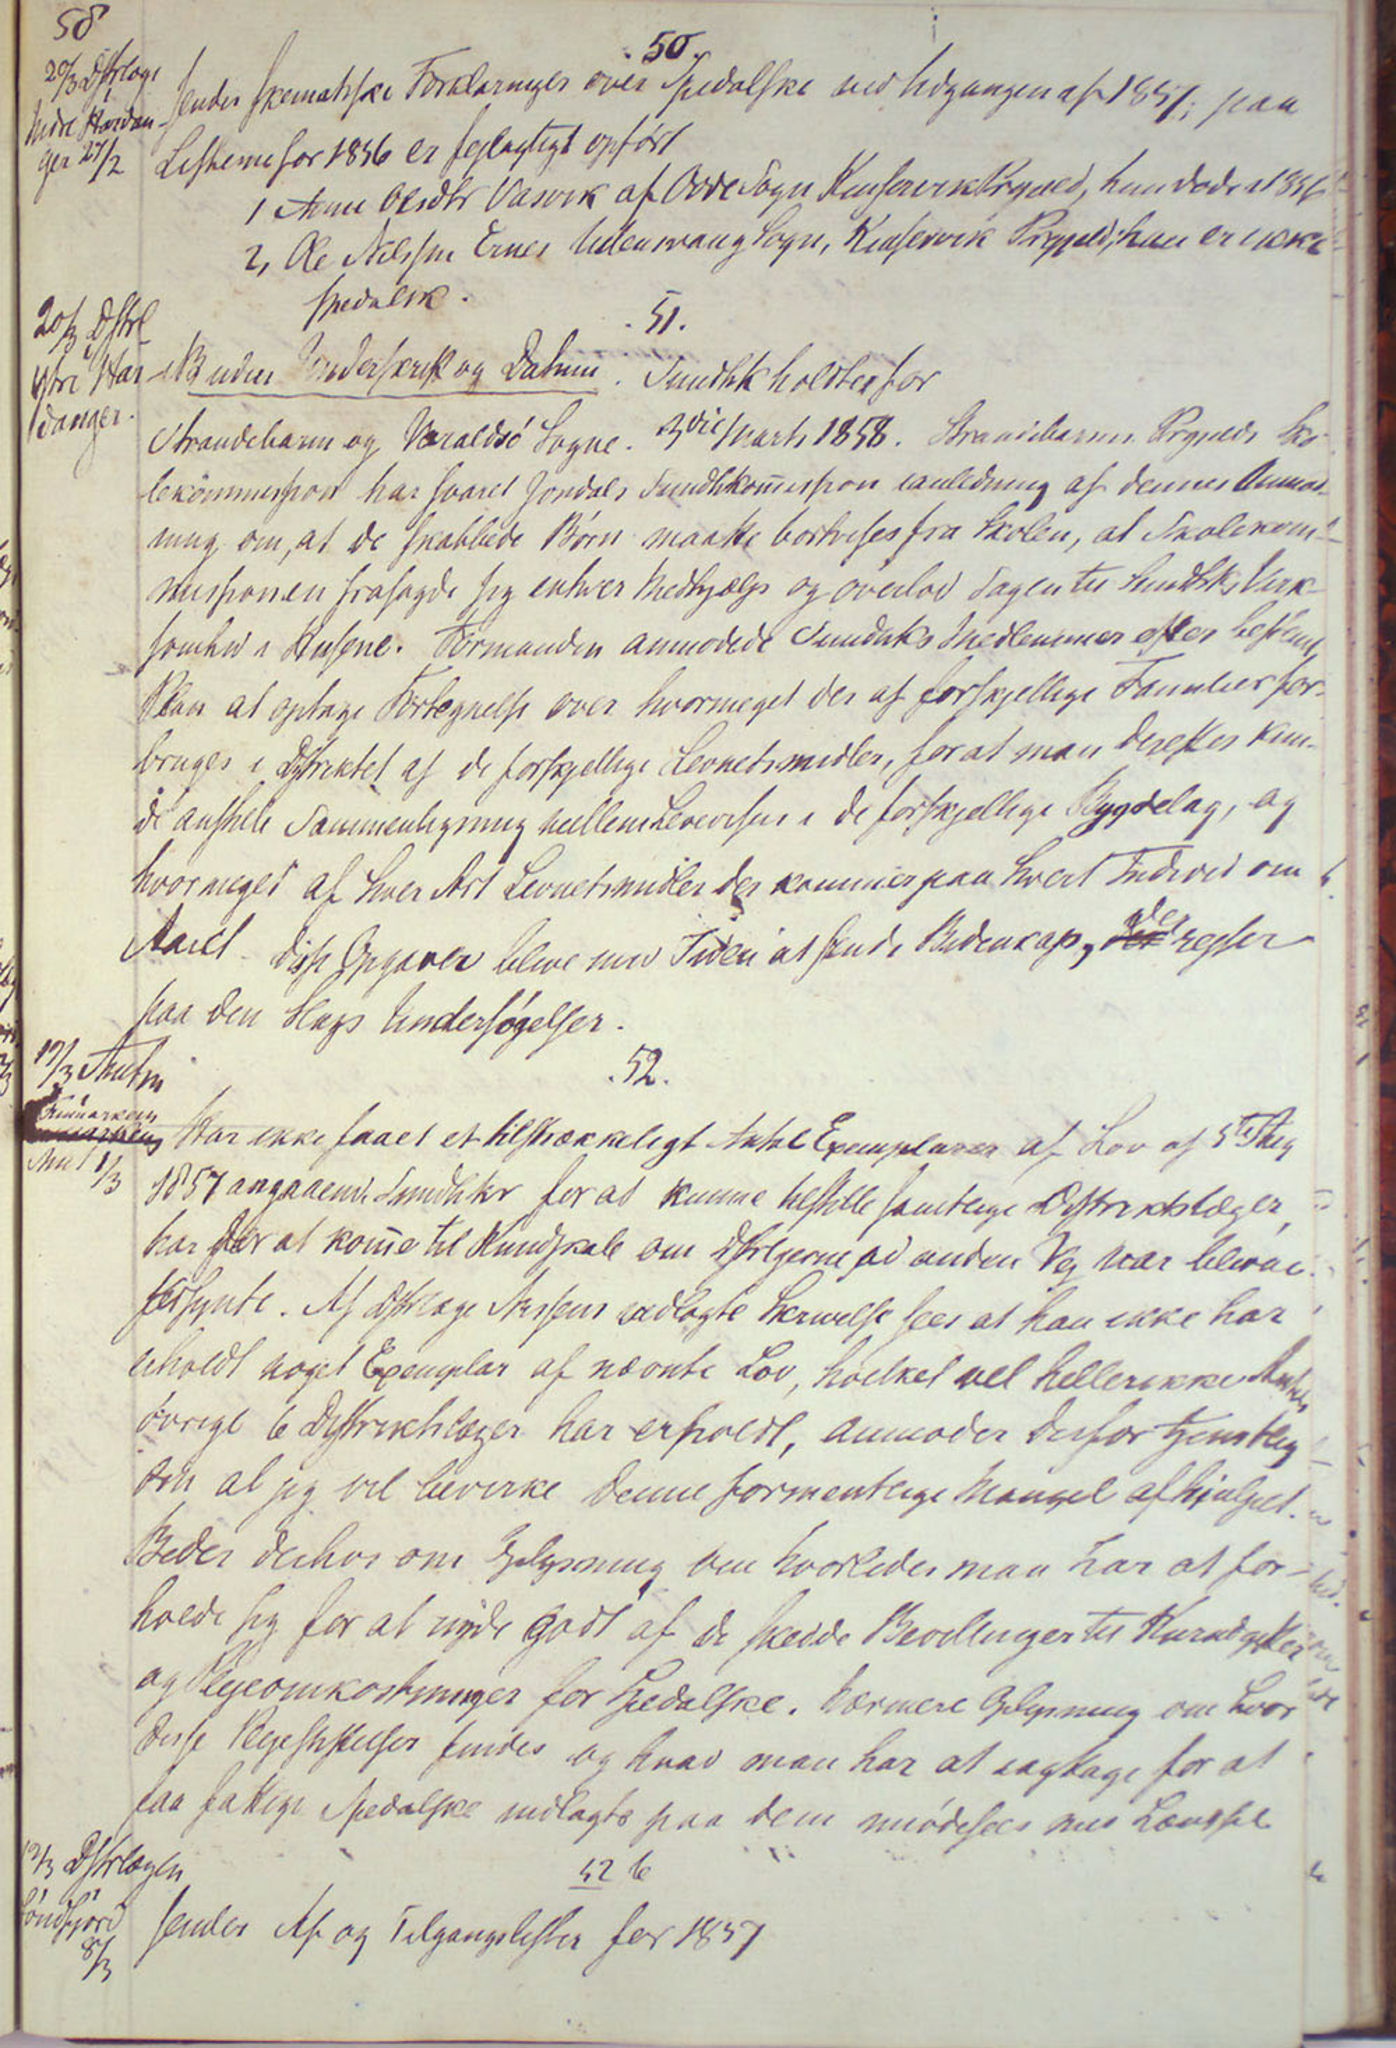 58
.50.
20/3 Dstrlæge
i
Indre Hardan-
ger 27/2
sender skematiske Forklaringer over Spedalske ved Udgangen af 1857; paa
Listerne for 1856 er feilagtigt opført
1 Anne Olsdtr Vasvik af Odde Sogn Kinservik Prgjeld, hun døde i 1856
2, Ole Nilssen Ernes Ullensvang Sogn, Kinservik Prgjeld; han er ikke
spedalsk.
.51.
20/3 Dstrl
i
Ystre Har-
danger.
NB uden Underskrift og Datum. Sundhk holdtes for
Strandebarm og Varaldsö Sogne. 3die Marts 1858. Strandebarms Prgjelds Sko-
lekommission har svaret Jondals Sundhkommission i anledning af dennes Anmod-
ning om, at de skabbede Børn maatte bortvises fra Skolen, at Skolekom-
missionen frasagde sig enhver Medhjælp og overlod Sagen til Sundhks Virk-
somhed i Husene. Formanden anmodede Sundhks Medlemmer efter bestemt
Plan at optage Fortegnelse over hvormeget der af forskjellige Familier for-
bruges i Distriktet af de forskjellige Levnetsmidler, for at man derefter kun-
de anstille Sammenligning mellem Levevisen i de forskjellige Bygdelag, og
hvormeget af hver Art Levnetsmidler der kommer paa hvert Individ om
Aaret. Disse Opgaver blive med Tiden at sende Videnskap, der
paa den Slags Undersøgelser.
.52.
17/3 Amtm
i
Finmarkens
Amt 1/3
Har ikke faaet et tilstrækkeligt Antal Exemplarer af Lov af
1857 angaaende Sundhkr for at kunne tilstille samtlige Distriktslæger,
har før at komme til Kundskab om Dstrlgerne ad anden Vej var blevne
forsynte. Af Dstrlæge Nissens vedlagte Skrivelse sees at han ikke har
erholdt noget Exemplar af nævnte Lov, hvilket vel hellerikke Amtets
övrige 6 Distriktslæger har erholdt, anmoder derfor tjenstlig
om at jeg vil bevirke denne formentlige Mangel afhjulpet.
Beder derhos om Oplysning om hvorledes man har at for-
holde sig for at nyde godt af de skedde Bevillinger til Kurudgifter
og Plejeomkostninger for Spedalske. Nærmere Oplysning om hvor
disse Plejestiftelser findes og hvad man har at iagttage for at
faa fattige Spedalske indlagte paa dem imödesees med Længsel
52 b
17/3 Dstrlægen
i
Söndfjord
8/3
sender Af og Tilgangslister for 1857